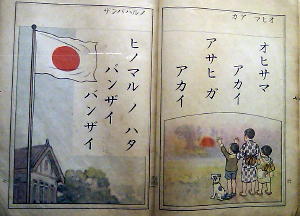 オヒサマ
アカイ
アサヒ ガ
アカイ
ヒノマル ノ ハタ
バンザイ
バンザイ